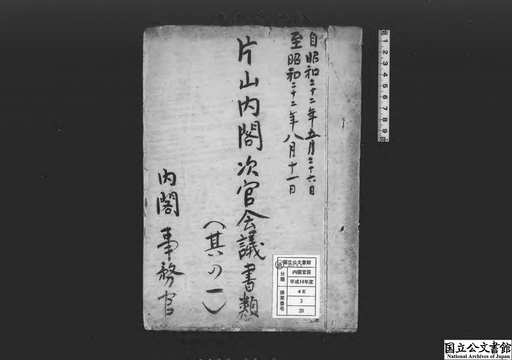 自昭和二十二年五月二十六日
至昭和二十二年八月十一日
片山内閣次官会議書類
(其の一)
内閣事務官
国立公文書館
分類
内閣官房
平成14年度
4E
排架番号
3
20
1 2 3 4 5 6 7 8 9
国立公文書館
National Archives of Japan